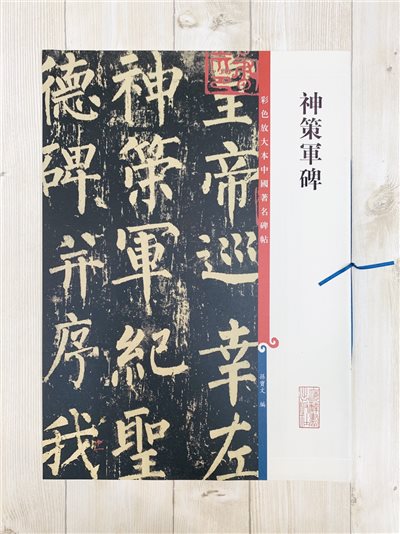 神策軍碑
彩色放大本中國著名碑帖
孫寶文 編
皇帝巡幸左
神策軍紀聖
德碑并序我